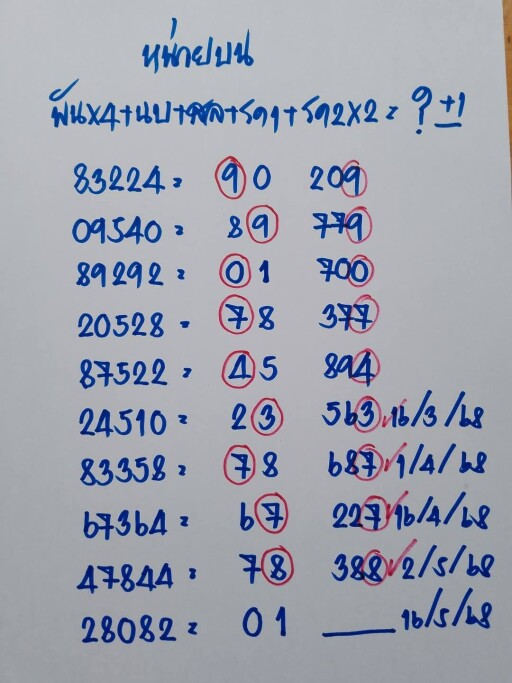 หน่ายบน
พันx4+นบ+สล+รว1+รว2x2= ? +1
83224= 90 209
09540= 89 779
89292= 01 700
20528= 78 377
87522= 45 894
24510= 23 563 ✓16/3/68
83358= 78 687 ✓1/4/68
67364= 67 227 ✓16/4/68
47844= 78 388 ✓2/5/68
28082= 01 ____ 16/5/68